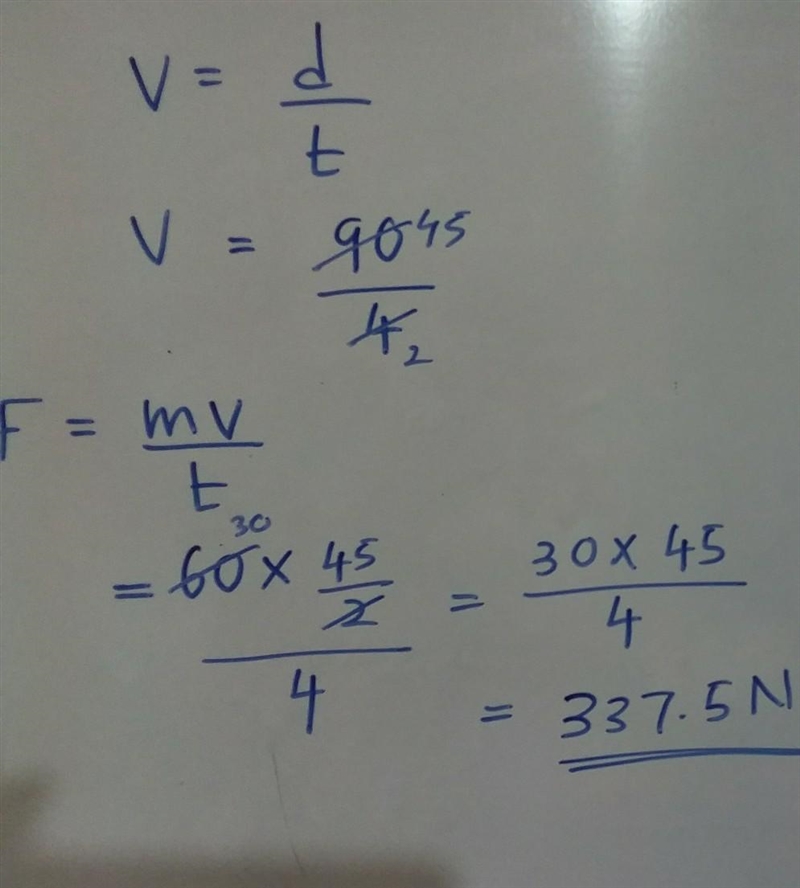 V = d/t
V = 90 45 / 4 2
F = mv/t
= 60 30 × 45/2 / 4 = 30 × 45 / 4
= 337.5 N